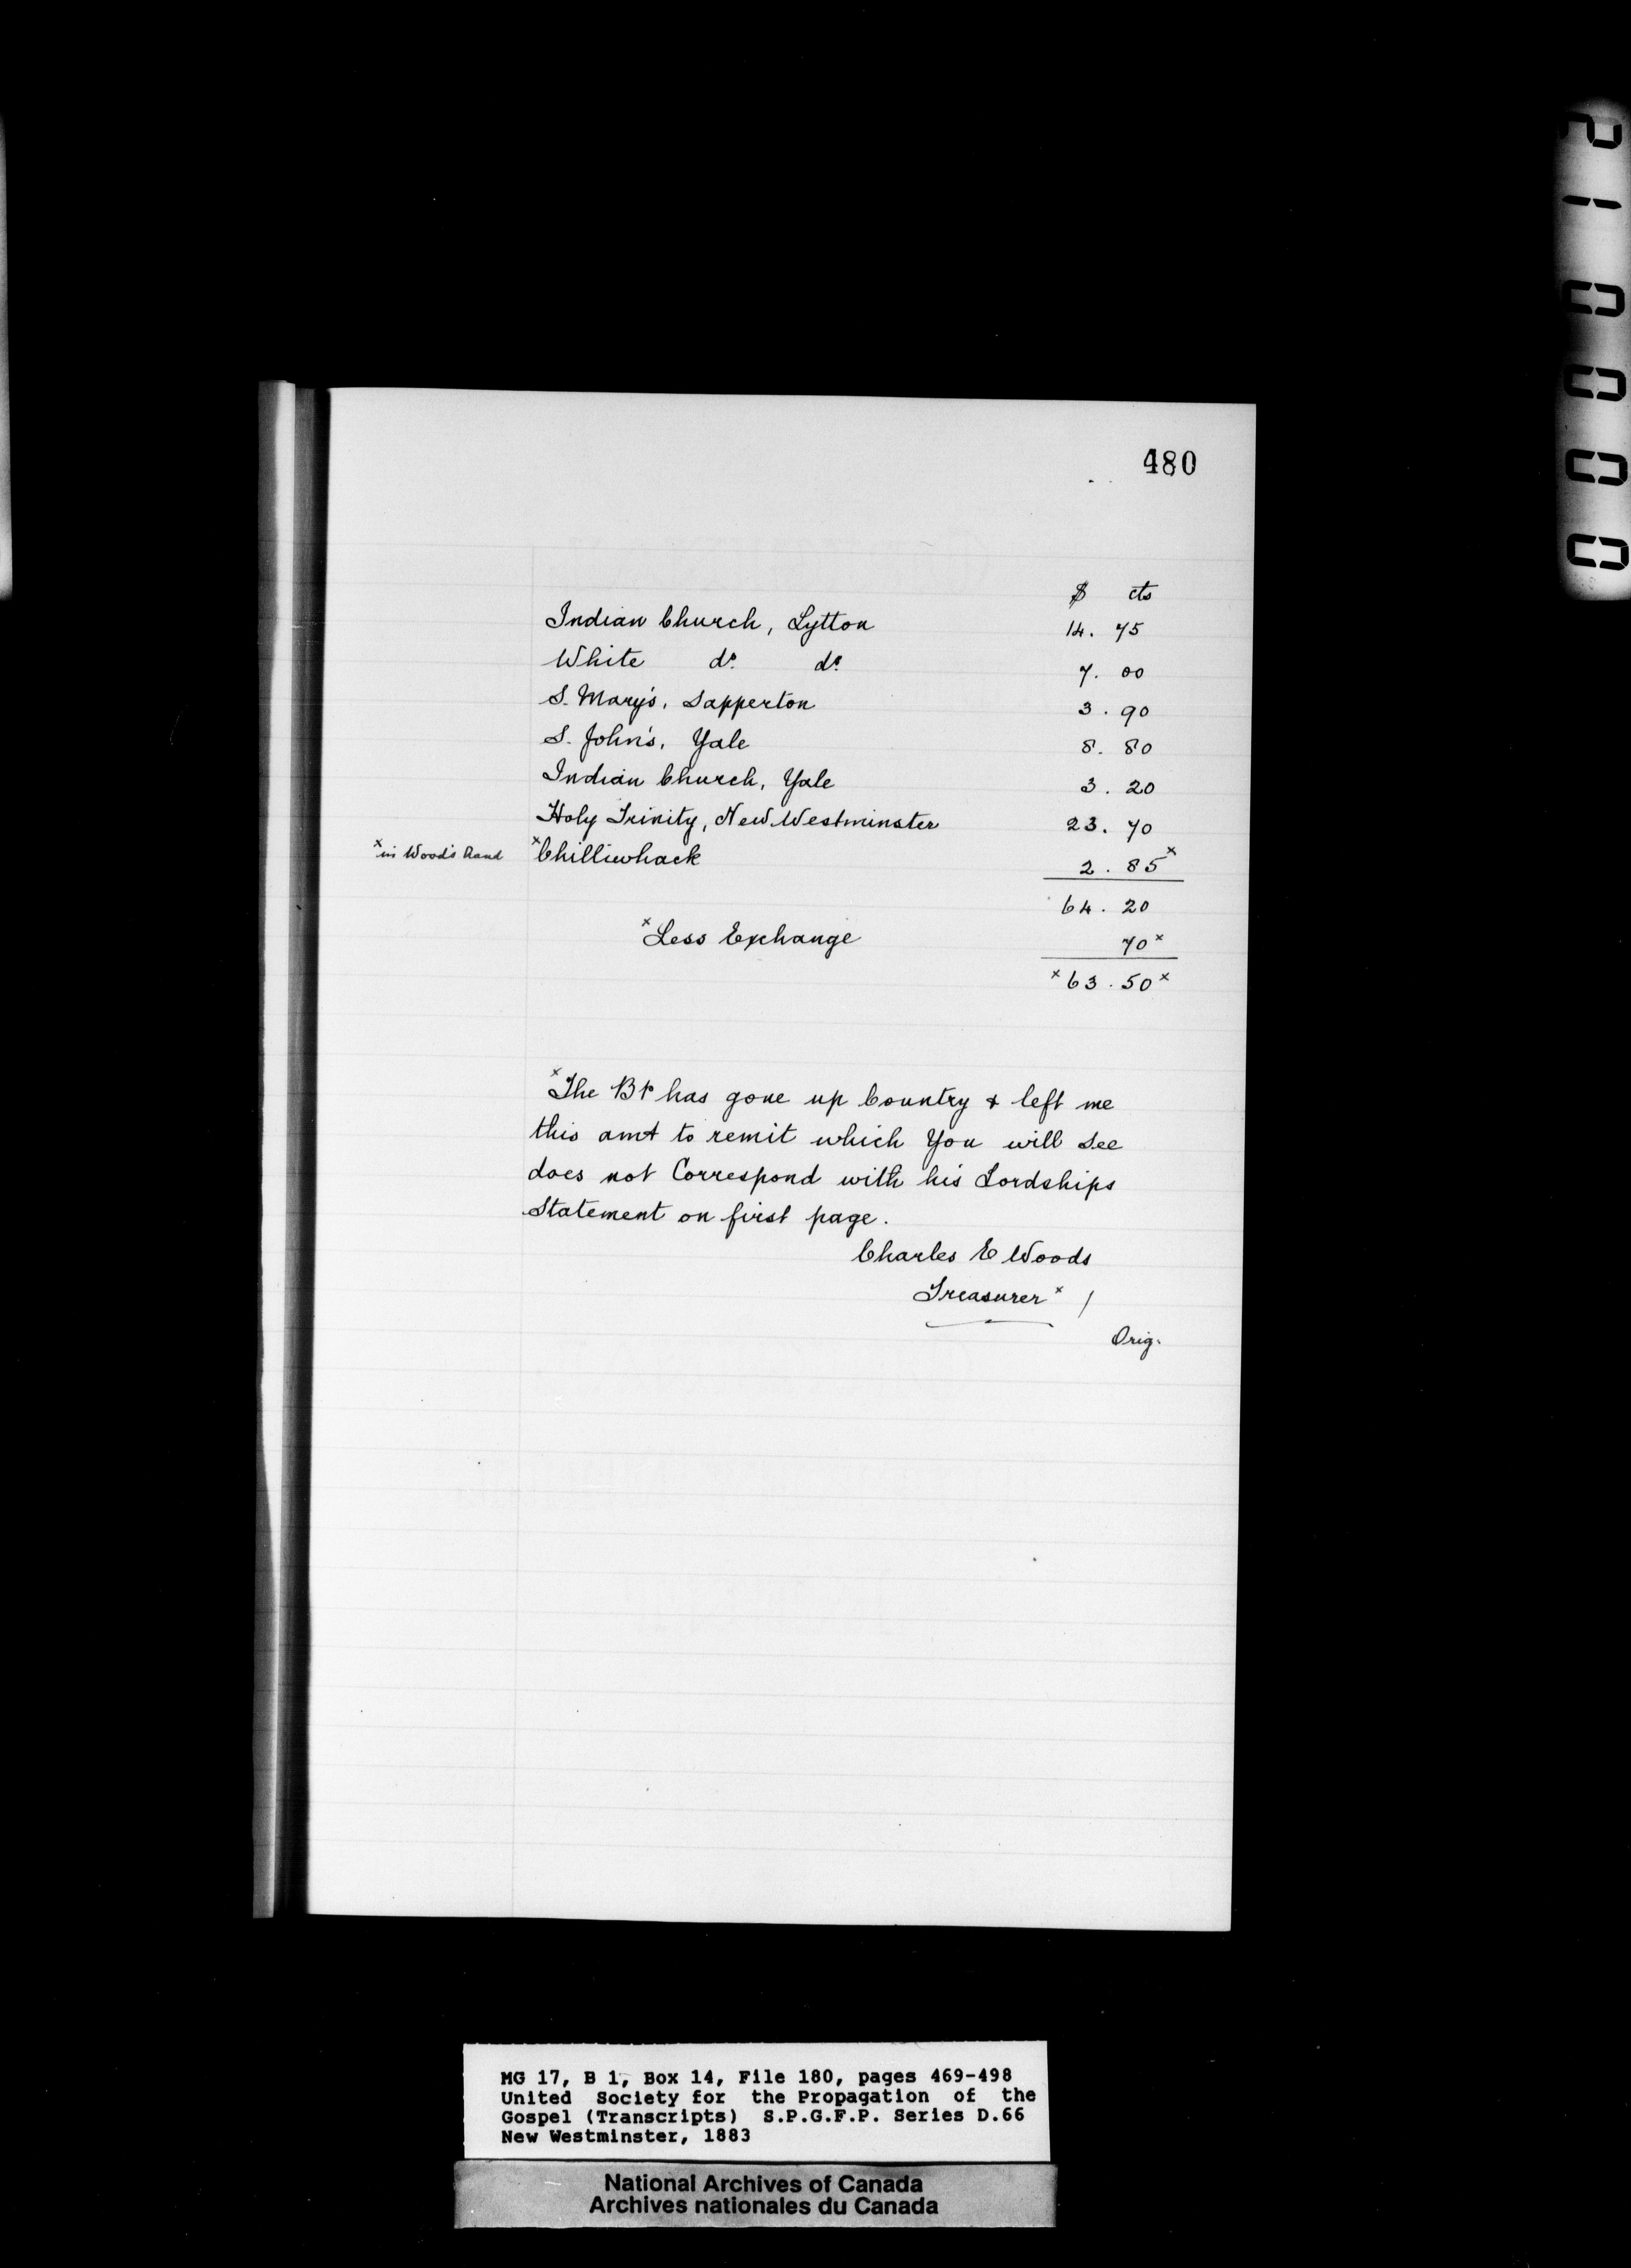 480
$ cts
Indian Church, Lytton 14. 75
White do. do. 7. 00
S. Mary's, Sapperton 3. 90
S. John's, Yale 8. 80
Indian Church, Yale 3. 20
Holy Trinity, New Westminster 23. 70
x in Wood's hand x Chilliwhack 2. 85 x
64. 20
x Less Exchange 70 x
x 63. 50 x
x The Bp has gone up Country & left me
this amt to remit which You will see
does not Correspond with his Lordships
Statement on first page.
Charles E Woods
Treasurer x /
Orig.
MG 17, B 1, Box 14, File 180, pages 469-498
United Society for the Propagation of the
Gospel (Transcripts) S.P.G.F.P. Series D.66
New Westminster, 1883
National Archives of Canada
Archives nationales du Canada
210000